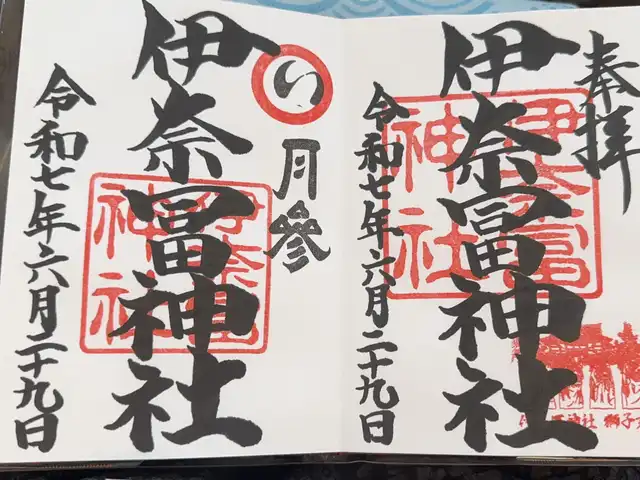 奉拝
伊奈冨神社
令和七年六月二十九日
伊奈冨
神社
神社 獅子
い
月参
伊奈冨神社
令和七年六月二十九日
伊奈冨
神社